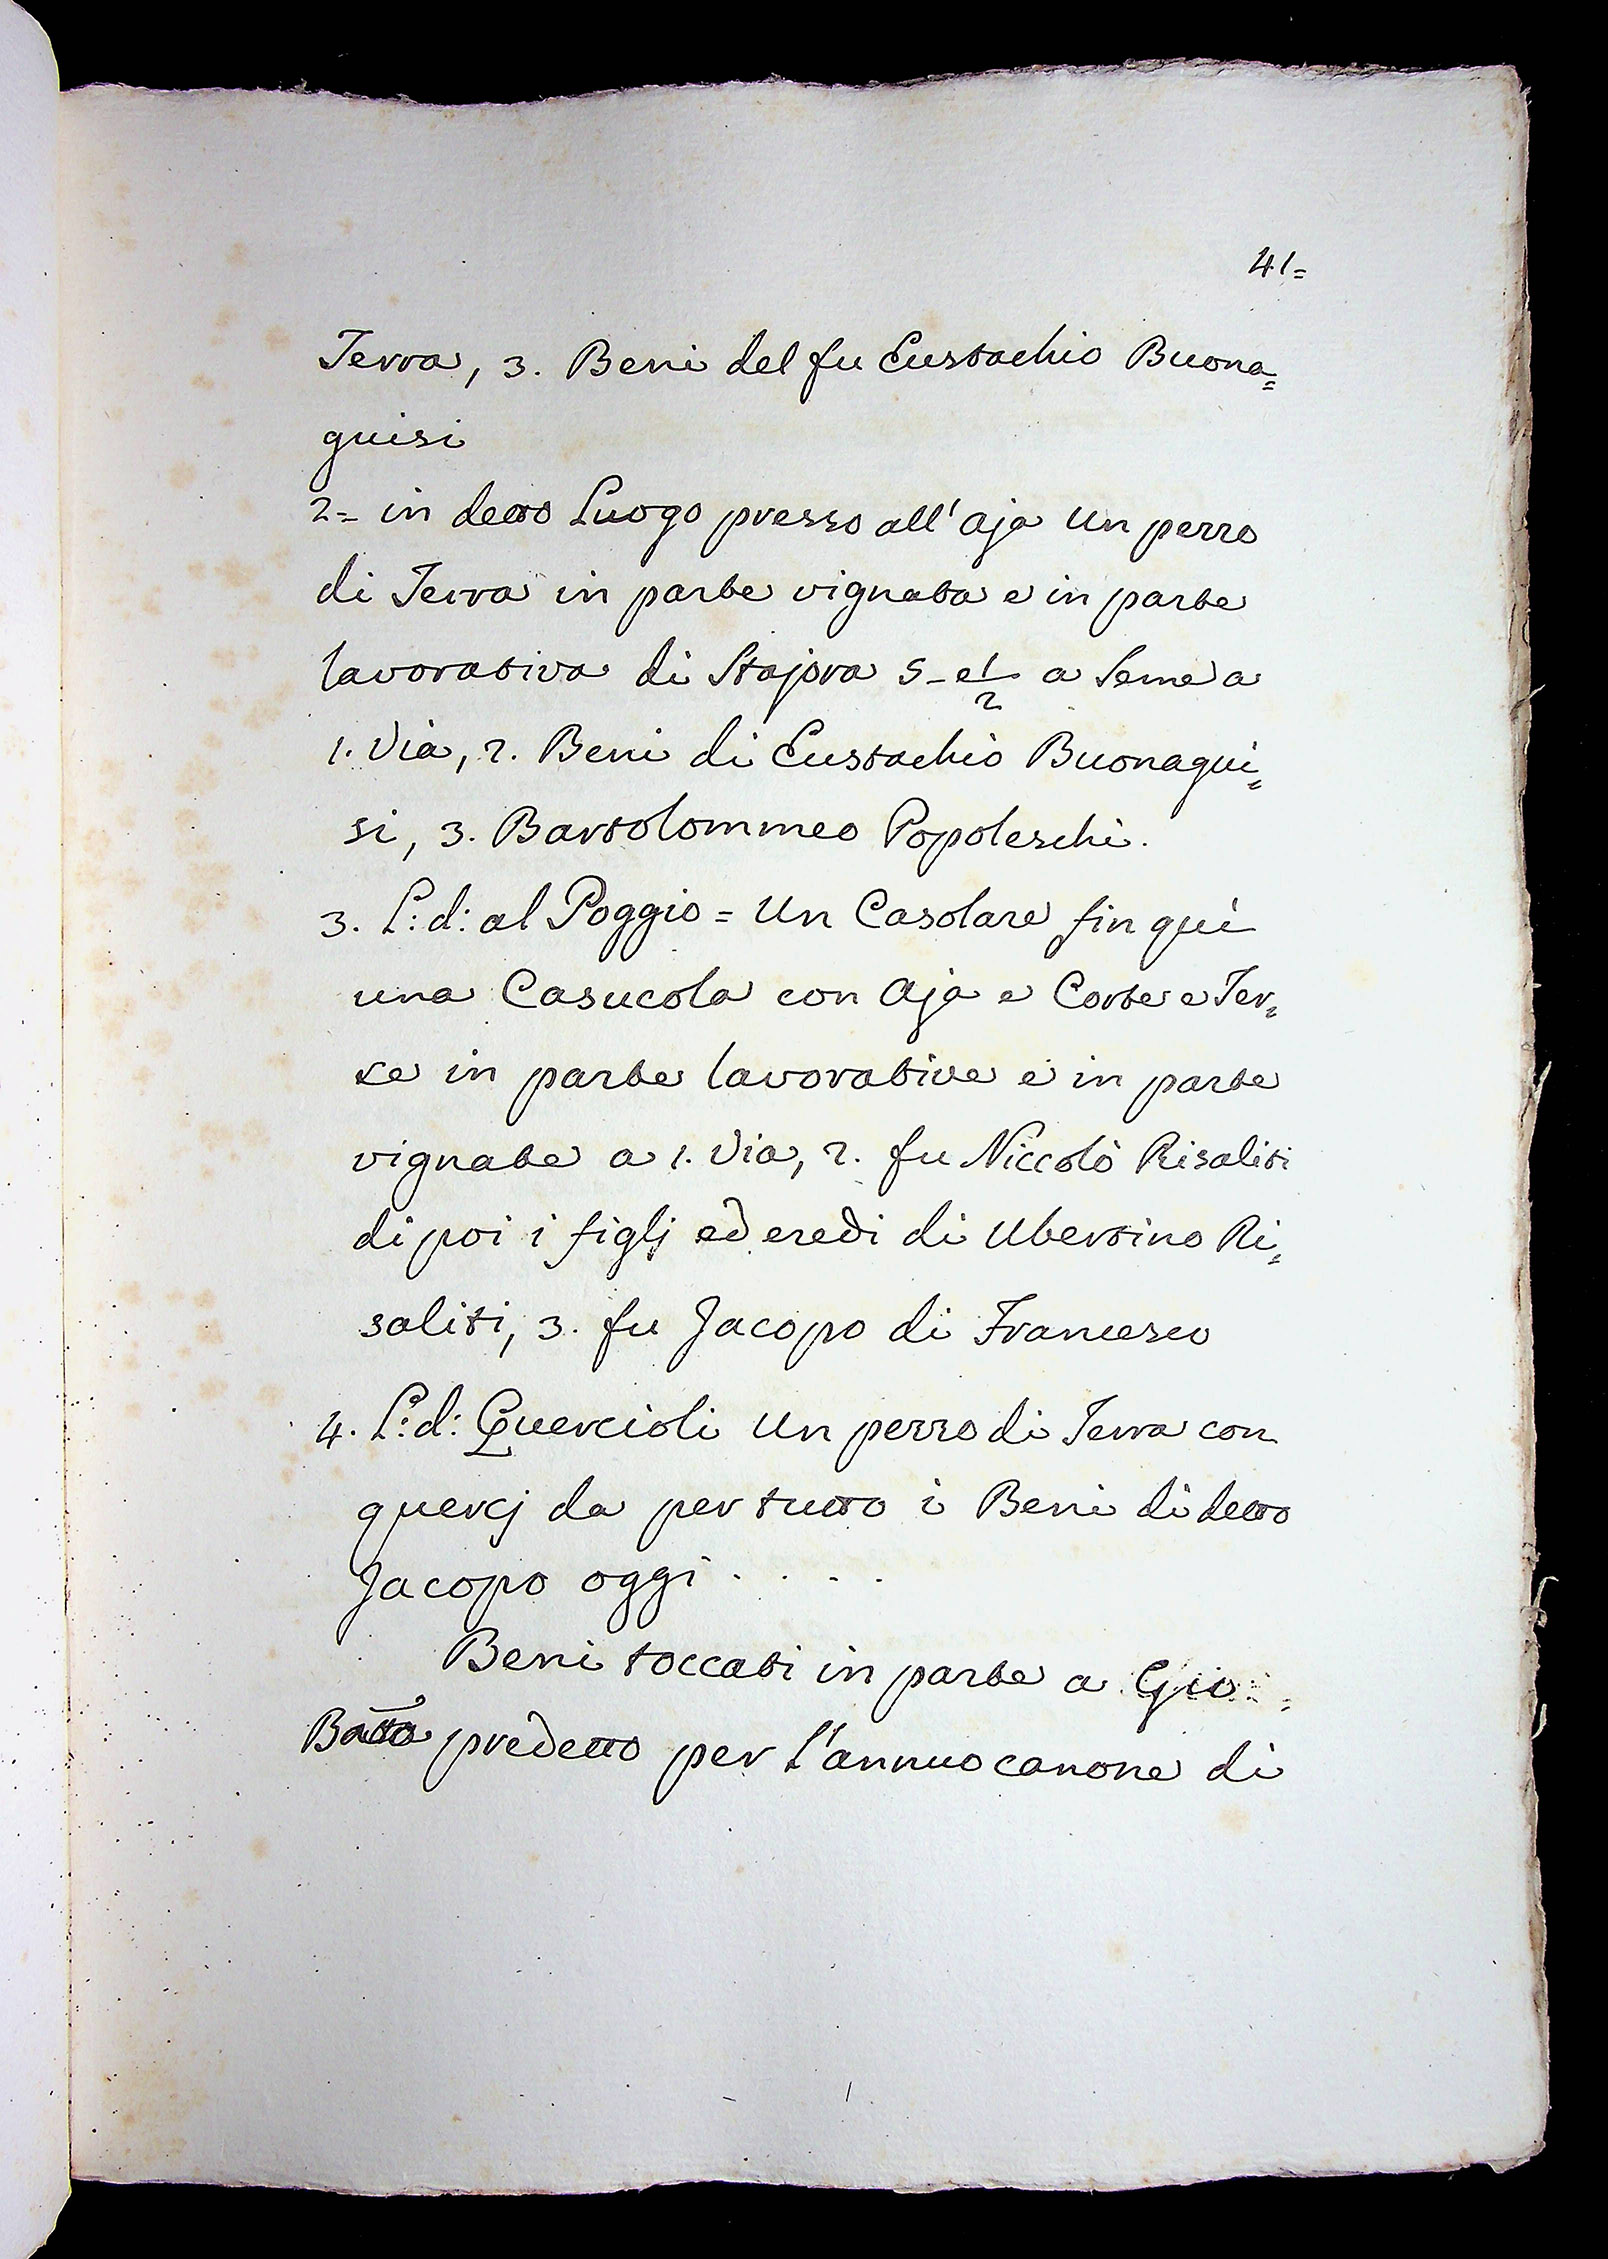 41=
Terra, 3. Beni del fu Eustachio Buona=
guisi
2= in detto Luogo presso all'Aja Un pezzo
di Terra in parte vignata e in parte
lavorativa di Stajora 5- e 1/2 a Seme a
1. Via, 2. Beni di Eustachio Buonagui=
si, 3. Bartolommeo Popoleschi.
3. L: d: al Poggio = Un Casolare fin qui
una Casucola con Aja e Corte e Ter=
re in parte lavorative e in parte
vignate a 1. Via, 2. fu Niccolò Risaliti
di poi i figlj ed eredi di Ubertino Ri=
saliti, 3. fu Jacopo di Francesco
4. L: d: Quercioli Un pezzo di Terra con
quercj da per tutto i Beni di detto
Jacopo oggi . . . .
Beni toccati in parte a Gio:
Batta predetto per l'annuo canone di